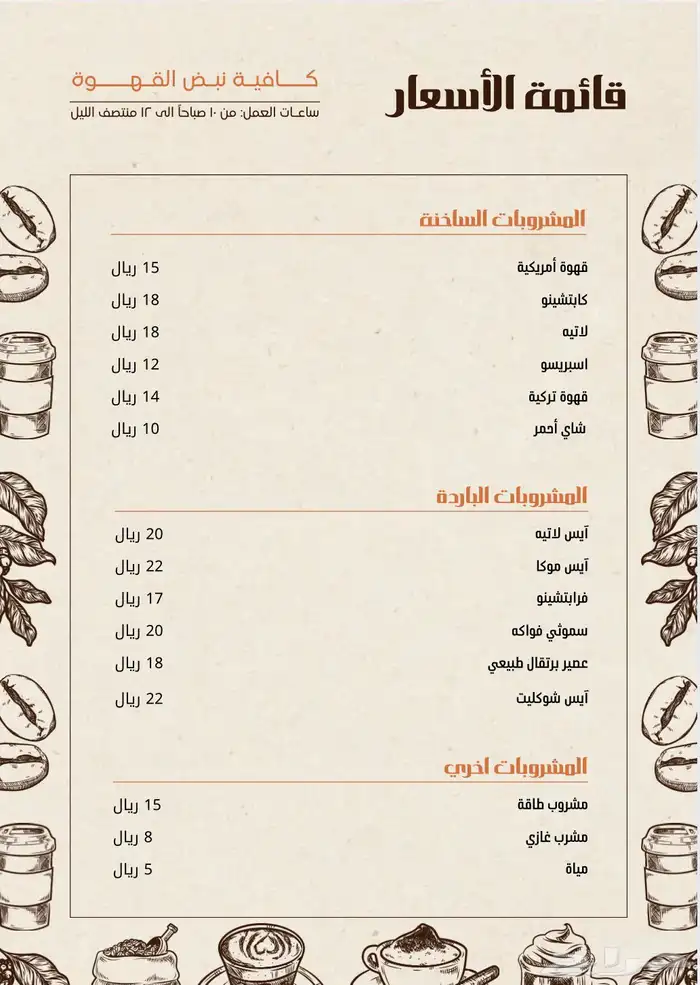 قائمة الأسعار
كافية نبض القهوة
ساعات العمل: من ١٠ صباحاً الى ١٢ منتصف الليل
المشروبات الساخنة
قهوة أمريكية 15 ريال
كابتشينو 18 ريال
لاتيه 18 ريال
اسبريسو 12 ريال
قهوة تركية 14 ريال
شاي أحمر 10 ريال
المشروبات الباردة
آيس لاتيه 20 ريال
آيس موكا 22 ريال
فرابتشينو 17 ريال
سموثي فواكه 20 ريال
عصير برتقال طبيعي 18 ريال
آيس شوكليت 22 ريال
المشروبات اخري
مشروب طاقة 15 ريال
مشرب غازي 8 ريال
مياة 5 ريال